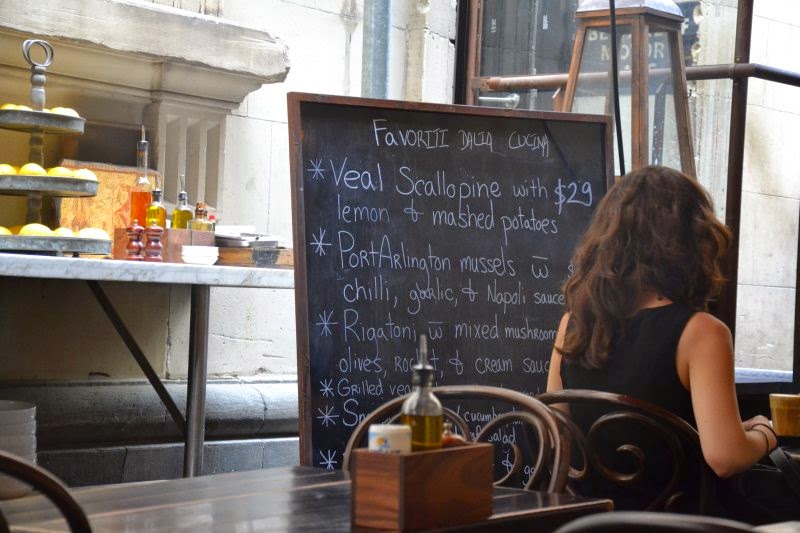 FAVORITI DALLA CUCINA
* Veal Scallopine with $29
lemon & mashed potatoes
* PortArlington mussels w̅
chilli, garlic, & Napoli sauce
* Rigatoni w̅ mixed mushroom
olives, rocket, & cream
* Grilled
* cucumber
salad
* &
MOTOR